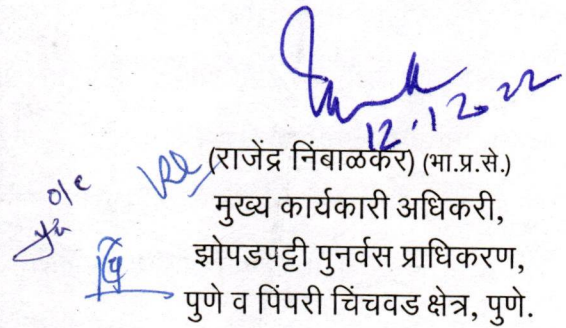 12.12.22
o/c
(राजेंद्र निंबाळकर) (भा.प्र.से.)
मुख्य कार्यकारी अधिकरी,
झोपडपट्टी पुनर्वस प्राधिकरण,
पुणे व पिंपरी चिंचवड क्षेत्र, पुणे.